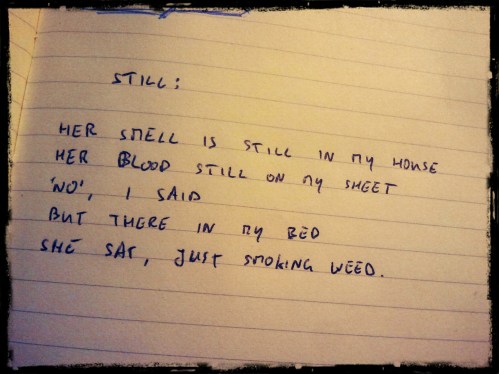 STILL:
HER SMELL IS STILL IN MY HOUSE
HER BLOOD STILL ON MY SHEET
'NO', I SAID
BUT THERE IN MY BED
SHE SAT, JUST SMOKING WEED.